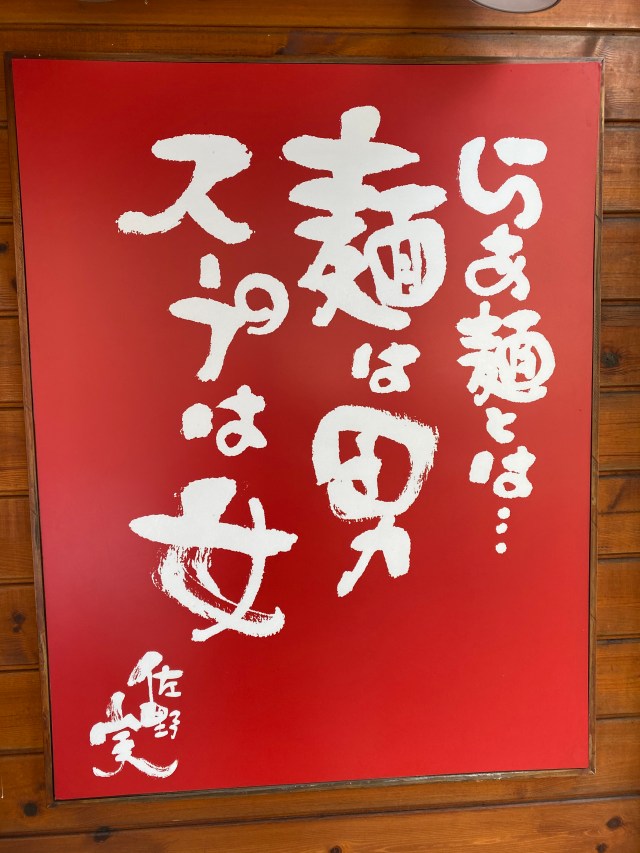 らぁ麺とは…
麺は男
スープは女
佐野
実